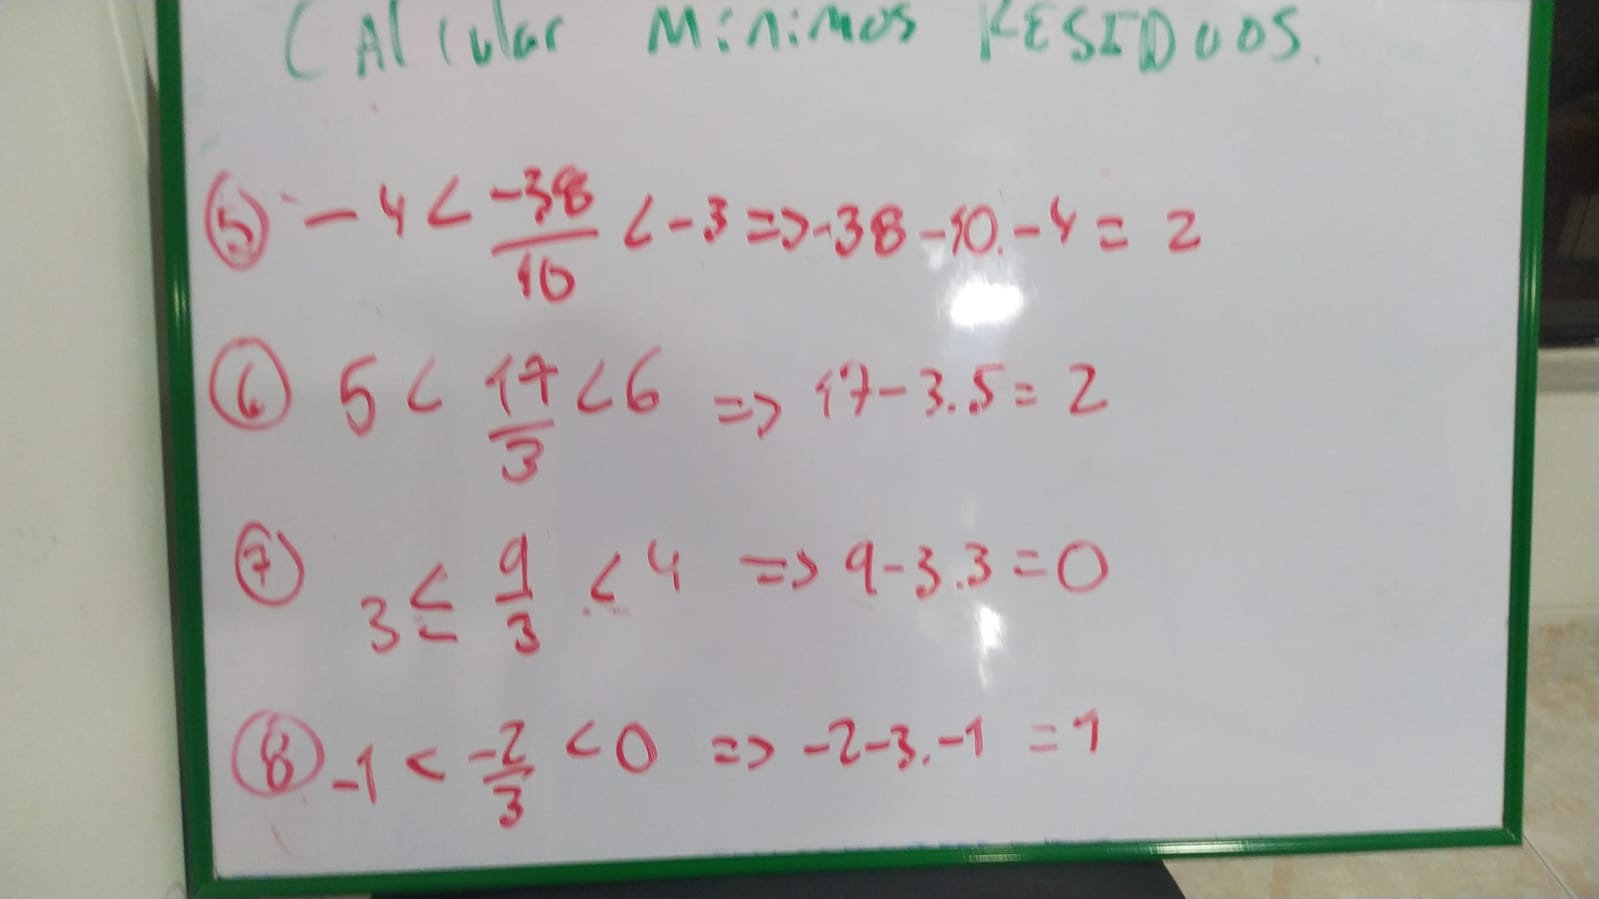 CAlcular Mínimos RESIDUOS.
⑤ -4 < -38/10 < -3 => -38 -10. -4 = 2
⑥ 5 < 17/3 < 6 => 17 - 3.5 = 2
⑦ 3 ≤ 9/3 < 4 => 9 - 3.3 = 0
⑧ -1 < -2/3 < 0 => -2 -3. -1 = 1